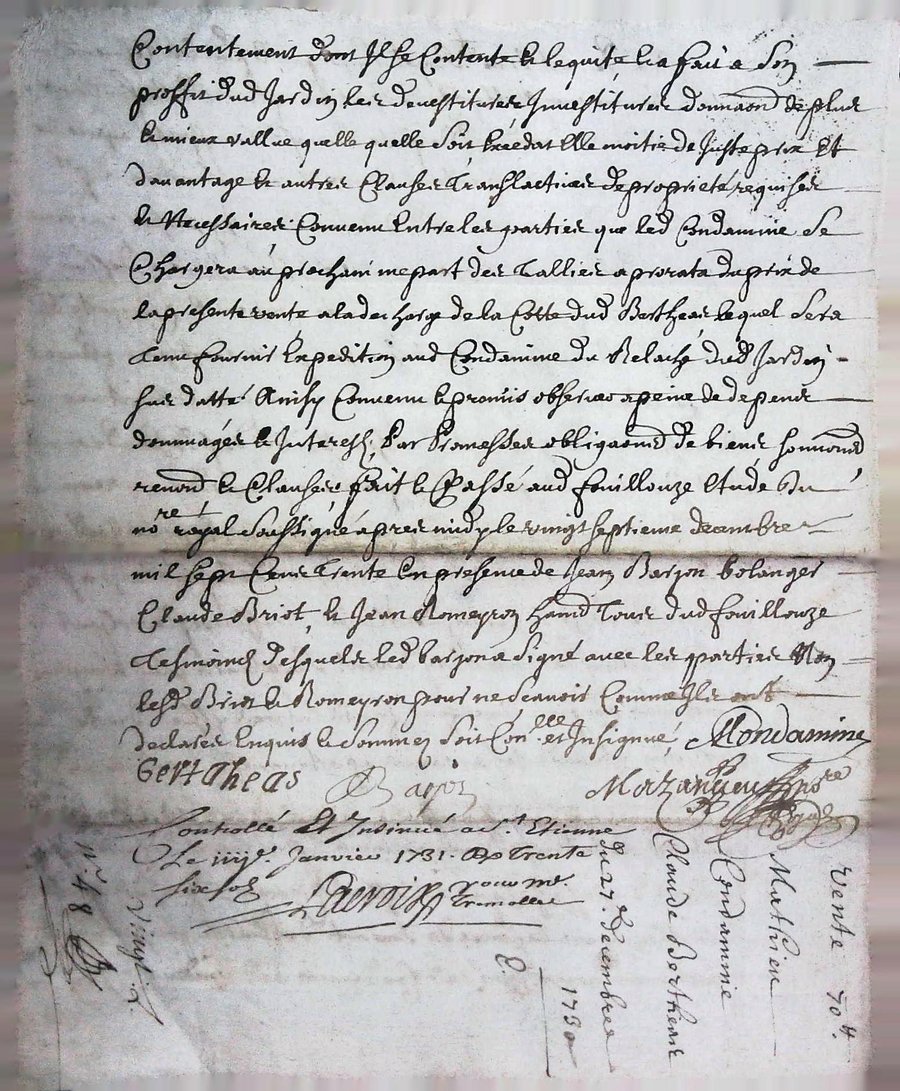 Contentement dont Il se Contente & le quite & a fait a Son
proffit dud Jardin les devestitures Investitures donnaond de plus
& mieux vallue quelle quelle Soit Excedat Elle moitie de Juste prix Et
davantage & autres Clauses Translactives de propriete requises
& Necessaires Convenu Entre les parties que led Condamine Se
Chargera au prochain mepart des Tallies a prorata du prix de
la presente vente a la descharge de la Cotte dud Bertheas lequel Sera
Tenu fournir Expedition aud Condamine du Relaché dud Jardin
sus datté Ainsy Convenu & promis observer a peine de depens
dommages & Interest, Par Promesses obligaond de biens
renond & Clauses fait & Passé aud fouillouze Etude du
nore royal Soussigné apres midy le vingt septieme decembre
mil sept Cens Trente En presence de Jean Barjon bolanger
Claude Briot, & Jean Romeyron Tous dud fouillouze
Tesmoins desquels led barjon a Signé avec les parties Non
lesd Briot & Romeyron pour ne Scavoir Comme Ils ont
declarés Enquis & Sommes Soit Conlle et Insignué, Condamine
Bertheas Barjon nore
Controllé Et Insinué a St. Etienne
Le iiije. Janvier 1731. Trente
six sols Lacroix pour mr.
Tremollet
vente 70tt.
Mathieu
Condamine
Claude Bertheas
du 27e. decembre
1730
No 48